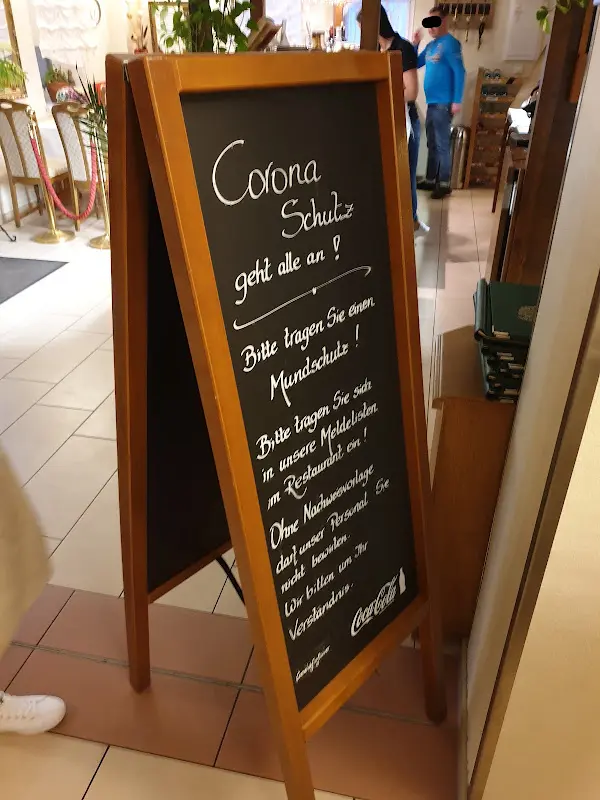 Corona
Schutz
geht alle an !
Bitte tragen Sie einen
Mundschutz !
Bitte tragen Sie sich
in unsere Meldelisten
im Restaurant ein !
Ohne Nachweisvorlage
darf unser Personal Sie
nicht bewirten.
Wir bitten um Ihr
Verständnis.
Coca-Cola